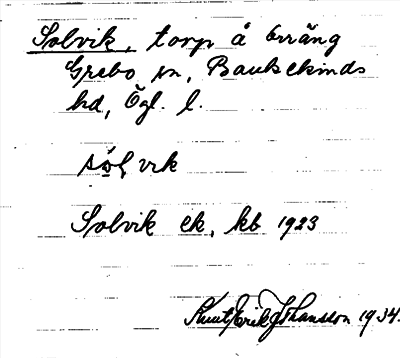 Solvik, torp å Orräng
Grebo sn, Bankekinds
hd, Ögl. l.
sólvik
Solvik ek, kb 1923
Knut Erik Johansson 1934.